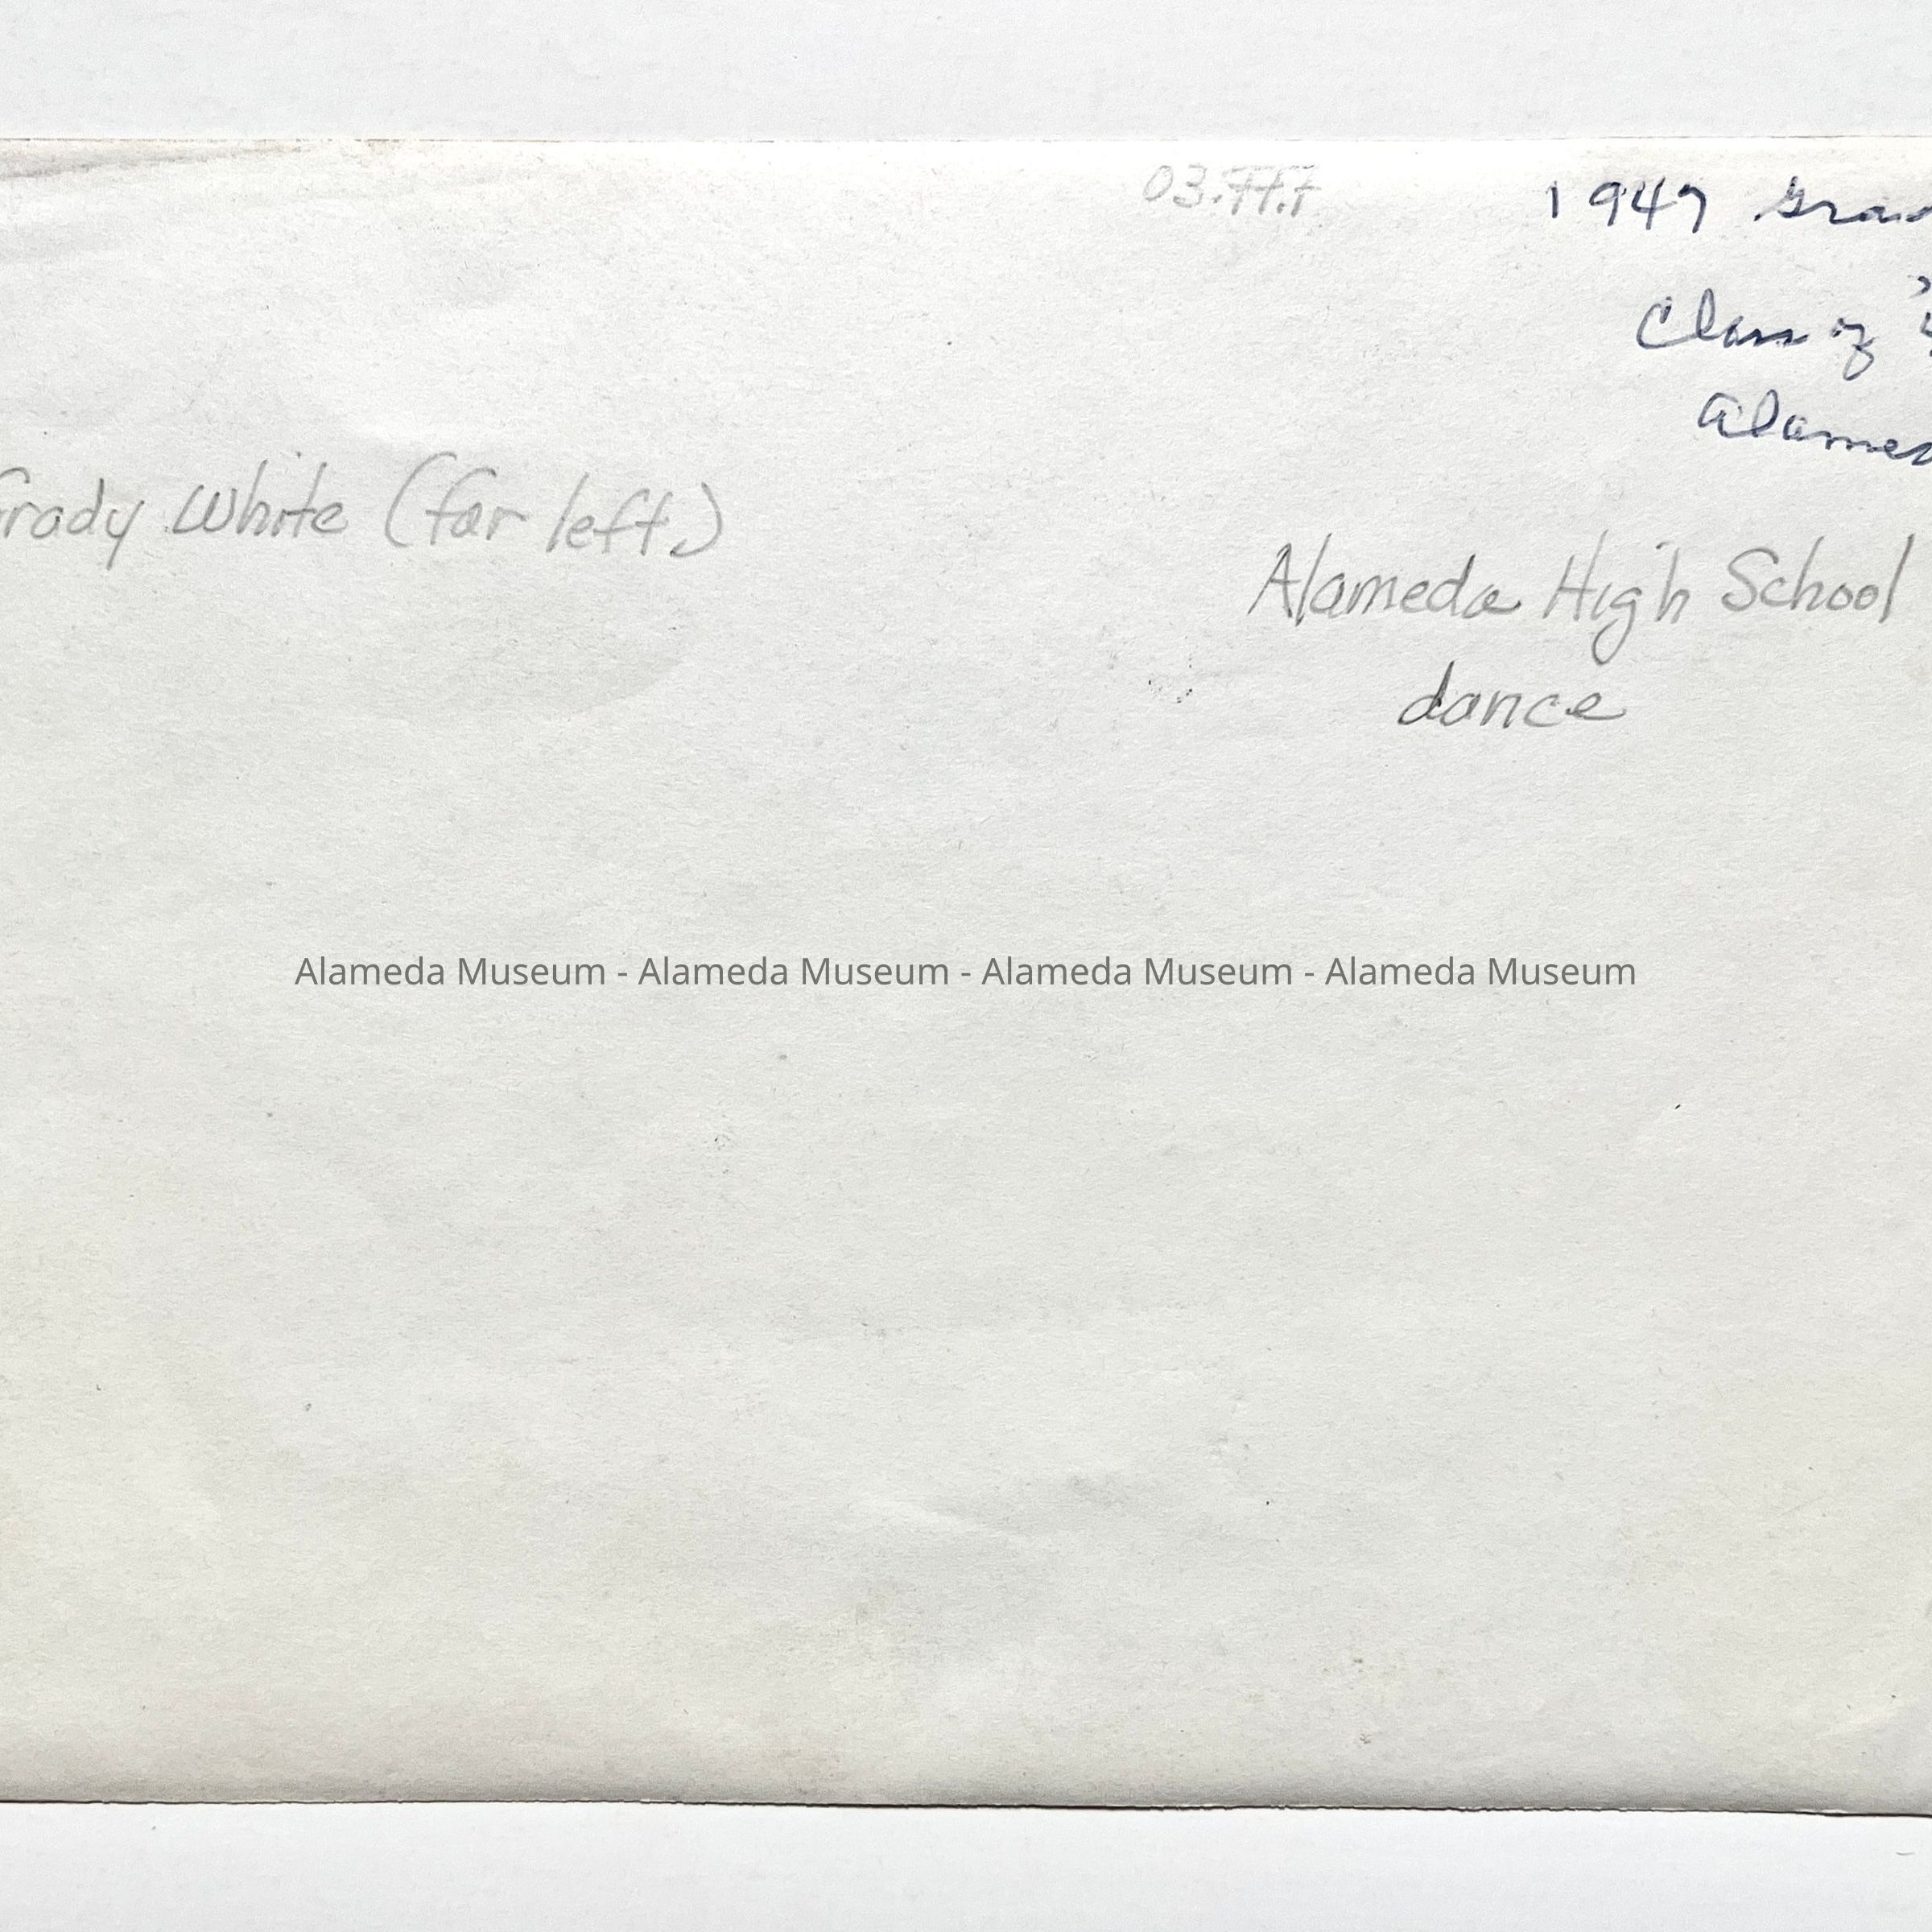 03.77.7
1947 Grad
Class of '4
Alamed
Grady White (far left)
Alameda High School
dance
Alameda Museum - Alameda Museum - Alameda Museum - Alameda Museum